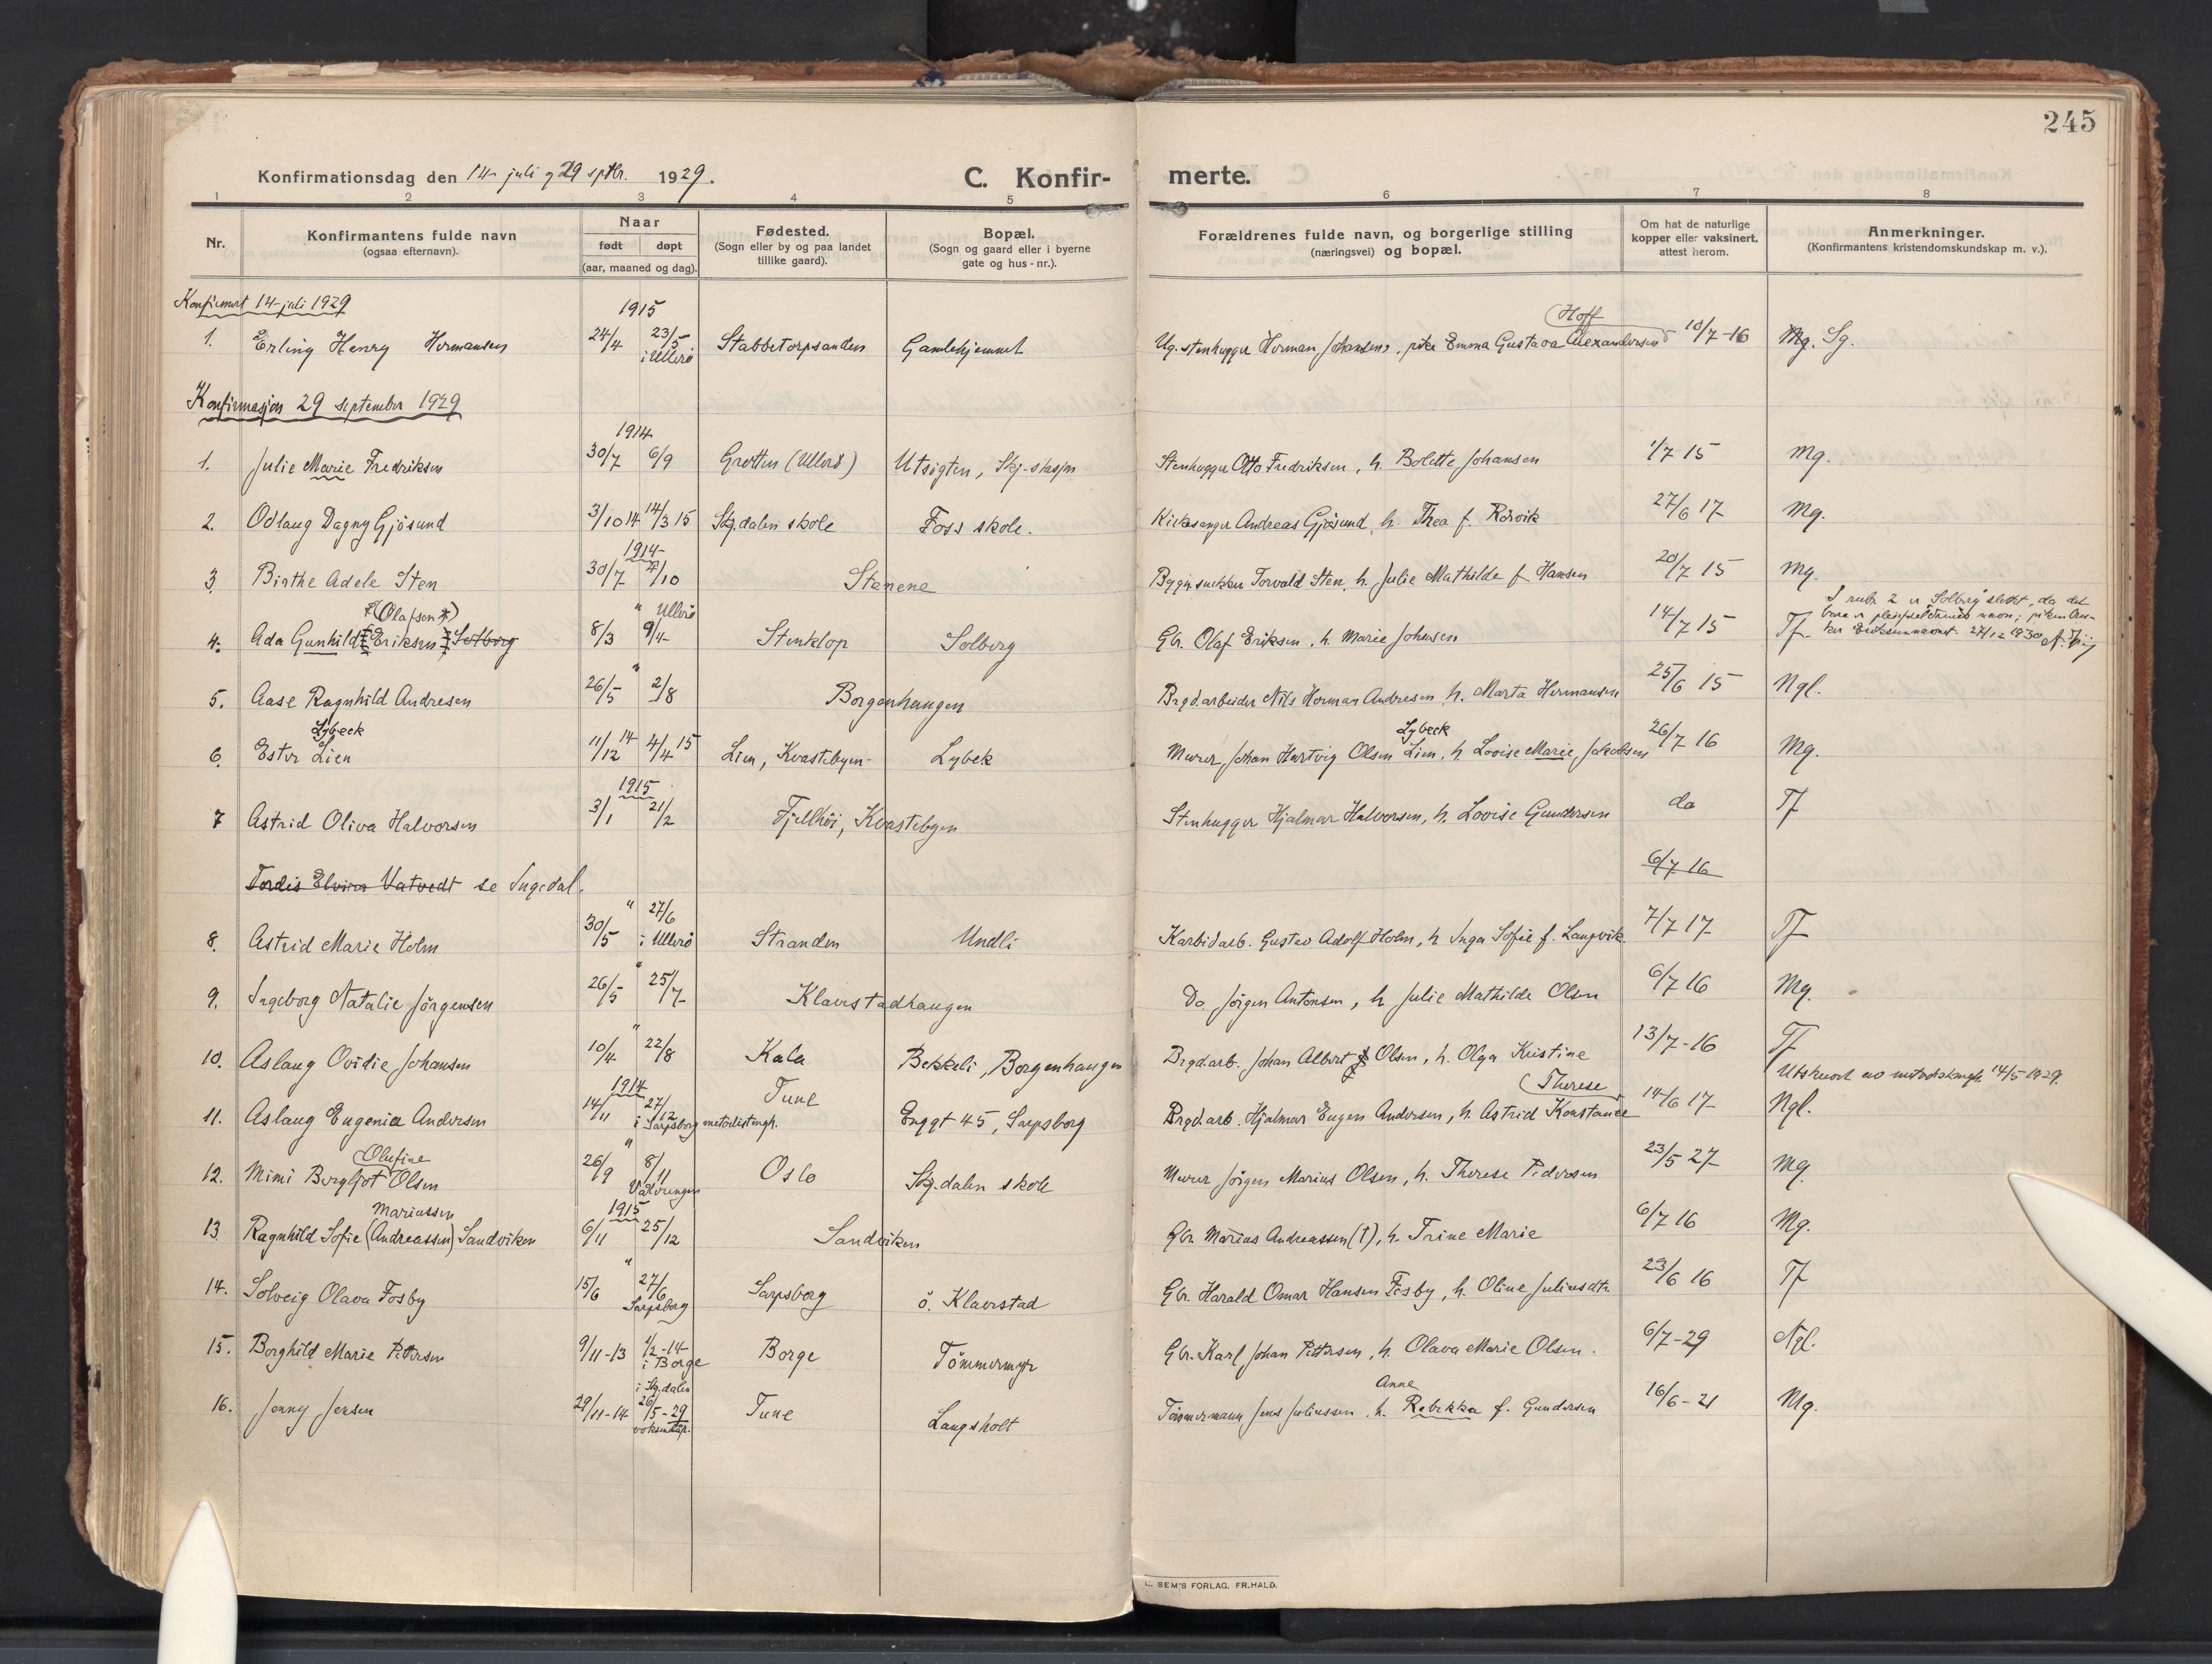 245
Konfirmationsdag den 14 juli og 29 septbr. 1929.
C. Konfir-merte.
1 2 3 4 5 6 7 8
Nr.
Konfirmantens fulde navn
(ogsaa efternavn).
Naar
født døpt
(aar, maaned og dag).
Fødested.
(Sogn eller by og paa landet
tillike gaard).
Bopæl.
(Sogn og gaard eller i byerne
gate og hus-nr.).
Forældrenes fulde navn, og borgerlige stilling
(næringsvei) og bopæl.
Om hat de naturlige
kopper eller vaksinert,
attest herom.
Anmerkninger.
(Konfirmantens kristendomskundskap m. v.).
Konfirmert 14-juli 1929
1915
Hoff
1. Erling Henry Hermansen 24/4 23/5 i Ullerø Stabbetorpsanden Gamlehjemmet Ug. stenhugger Herman Johansen, pike Emma Gustava Alexandersen 10/7-16 Mg. Sg.
Konfirmasjon 29 september 1929
1914
1. Julie Marie Fredriksen 30/7 6/9 Grotten (Ullerø) Utsigten, Skj-stasjon Stenhugger Otto Fredriksen, h. Bolette Johansen 1/7 15 Mg.
2. Odlaug Dagny Gjøsund 3/10 14 14/3 15 Skj.dalen skole Foss skole. Kirkesanger Andreas Gjøsund, h. Thea f. Rørvik 27/6 17 Mg.
1914
3. Birthe Adele Sten 30/7 4/10 Stenene Byggn.snekker Torvald Sten, h. Julie Mathilde f. Hansen 20/7 15 Mg.
(Olafsen) " Ullerø
4. Ada Gunhild Eriksen Solberg 8/3 9/4 Stenklop Solberg Gbr. Olaf Eriksen, h. Marie Johansen 14/7 15 Tf
I rubr. 2 er "Solberg" slettet, da det
bare er pleieforeldrenes navn; piken øns-
ker Eriksennavnet. 27/12 1930
5. Aase Ragnhild Andresen 26/5 " 2/8 Borgenhaugen Brgd.arbeider Nils Herman Andresen, h. Marta Hermansen 25/6 15 Ngl.
Lybeck Lybeck
6. Ester Lien 11/12 14 4/4 15 Lien, Kvastebyen Lybek Murer Johan Hartvig Olsen Lien, h. Lovise Marie Jacobsen 26/7 16 Mg.
1915
7 Astrid Oliva Halvorsen 3/1 21/2 Fjellhøi, Kvastebyen Stenhugger Hjalmar Halvorsen, h. Lovise Gundersen do Tf
Tordis Elvira Vatvedt se Ingedal. 6/7 16
8. Astrid Marie Holm 30/5 " 27/6 i Ullerø Stranden Undli Karbidarb. Gustav Adolf Holm, h. Inga Sofie f. Langvik 7/7 17 Tf
9. Ingeborg Natalie Jørgensen 26/5 " 25/7 Klavestadhaugen Do. Jørgen Antonsen, h. Julie Mathilde Olsen 6/7 16 Mg.
10. Aslaug Ovidie Johansen 10/4 " 22/8 Kala Bekkeli, Borgenhaugen Brgd.arb. Johan Albert Olsen, h. Olga Kristine 13/7-16 Tf
1914 Therese
11. Aslaug Eugenia Andersen 14/11 27/12 i Sarpsborg metodistmgh. Tune Enggt 45, Sarpsborg Brgd.arb. Hjalmar Eugen Andersen, h. Astrid Konstance 14/6 17 Utskrevet av metodistmgh. 14/5 1929. Ngl.
Olufine
12. Mimi Bergljot Olsen 26/9 " 8/11 Vålerengen Oslo Skj.dalen skole Murer Jørgen Marius Olsen, h. Therese Pedersen 23/5 27 Mg.
Mariussen 1915
13 Ragnhild Sofie (Andreassen) Sandviken 6/11 25/12 Sandviken Gbr. Marius Andreassen (†), h. Trine Marie 6/7 16 Mg.
14. Solveig Olava Fosby 15/6 " 27/6 Sarpsborg Sarpsborg ö. Klavestad Gbr. Harald Omar Hansen Fosby, h. Oline Juliusdtr. 23/6 16 Tf
15. Borghild Marie Pettersen 9/11-13 1/2-14 i Borge Borge Tømmermyr Gbr. Karl Johan Pettersen, h. Olava Marie Olsen. 6/7-29 Ngl.
Anne
16. Jenny Jensen 29/11-14 i Skj.dalen 26/5-29 voksendåp. Tune Langsholt Tømmermann Jens Juliussen, h. Rebekka f. Gundersen 16/6-21 Mg.
SEM'S FORLAG, FR.HALD.